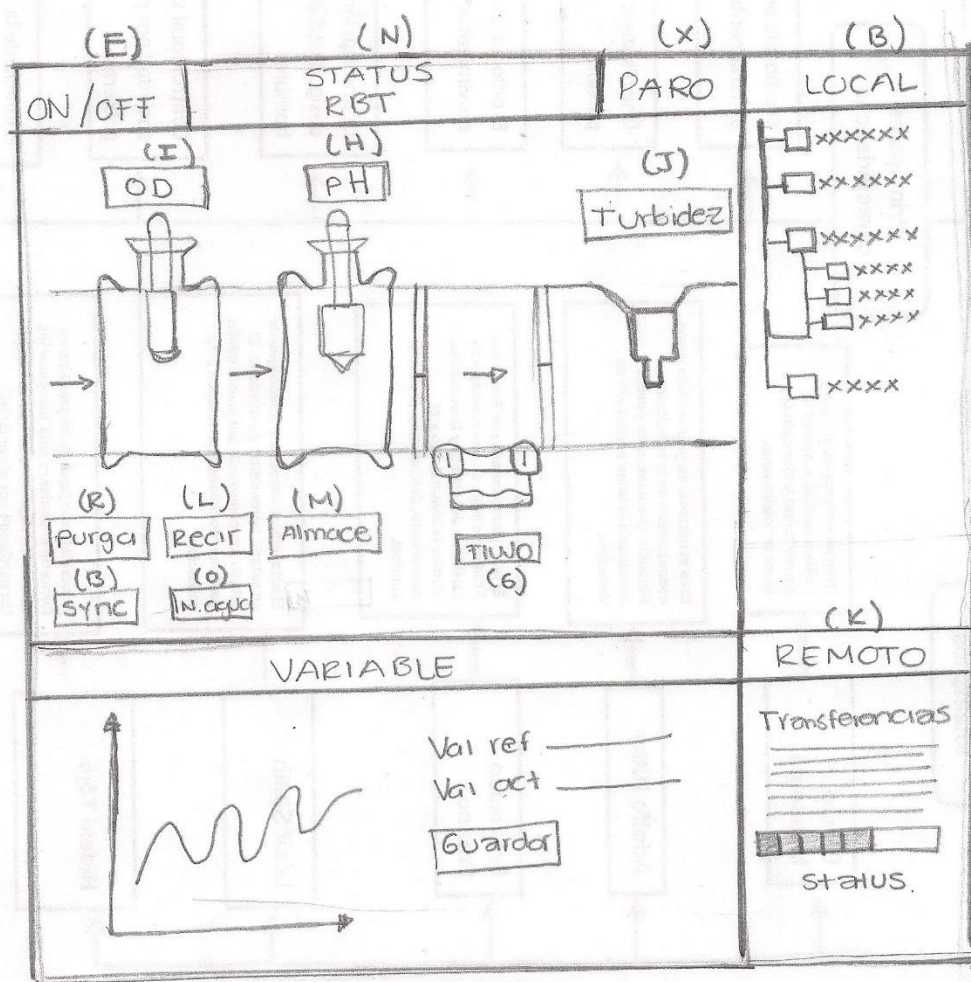 (E)
(N)
(X)
(B)
ON/OFF
STATUS
RBT
PARO
LOCAL.
(I)
OD
(H)
pH
(J)
Turbidez
xxxxxx
xxxxxx
xxxxxx
xxxx
xxxx
xxxx
xxxx
(R)
Purga
(L)
Recir
(M)
Almace
FlUJO
(G)
(B)
Sync
(O)
N.agua
VARIABLE
Val ref
Val act
Guardar
(K)
REMOTO
Transferencias
Status.